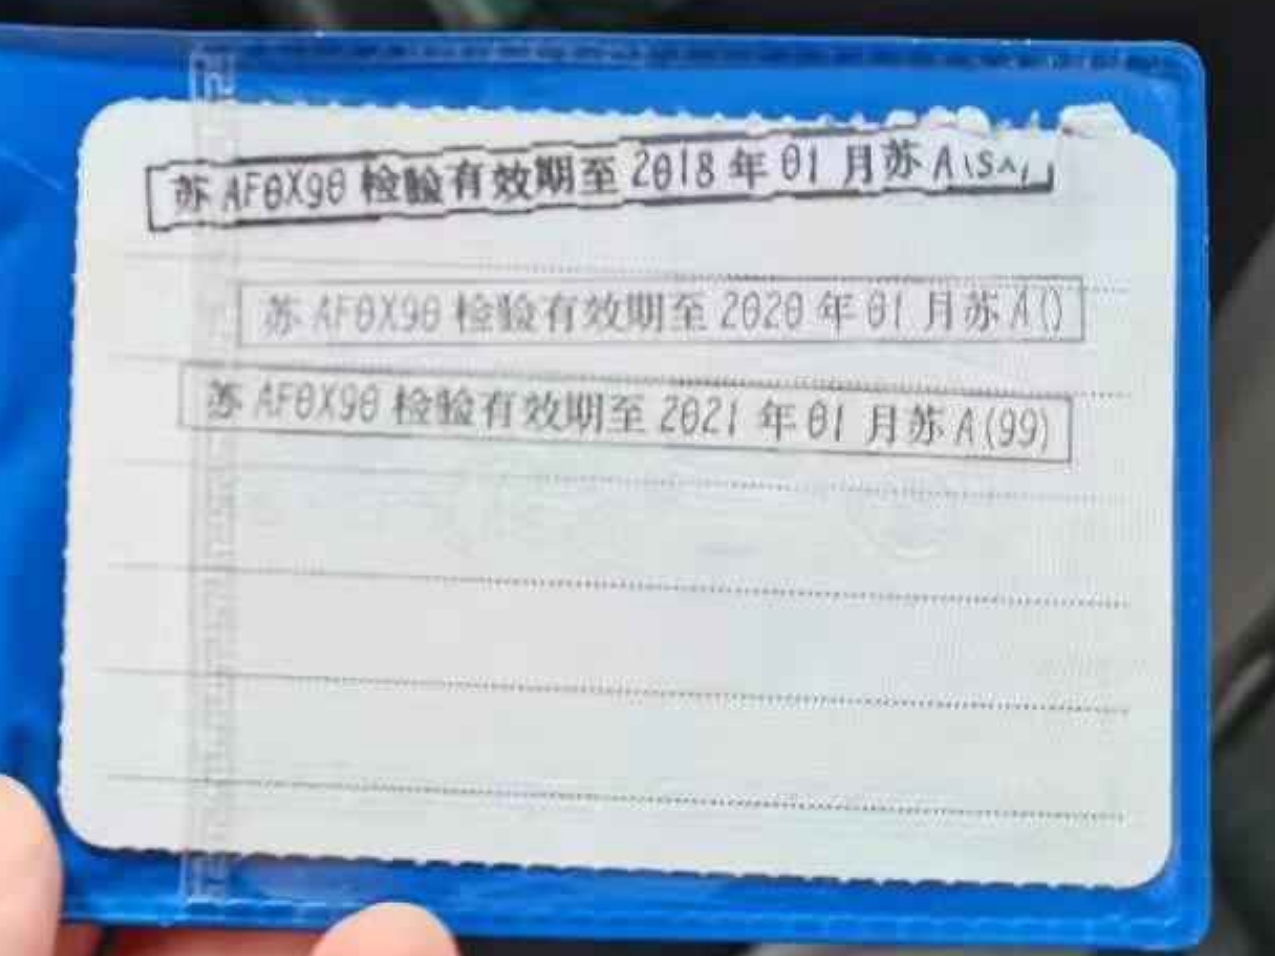 苏 AF0X90 检验有效期至 2018 年 01 月苏 A
苏 AF0X90 检验有效期至 2020 年 01 月苏 A()
苏 AF0X90 检验有效期至 2021 年 01 月苏 A(99)